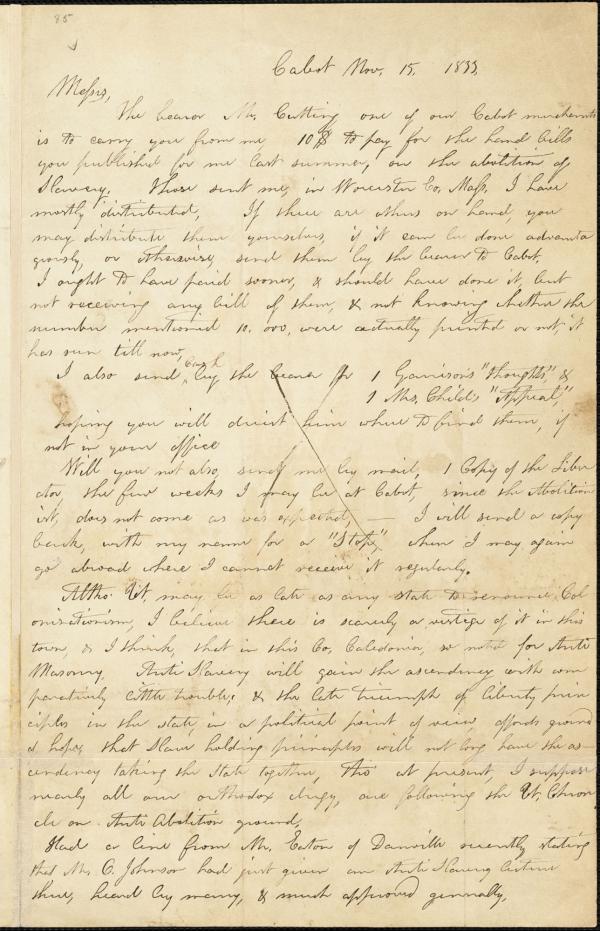 85
Cabot Nov. 15, 1833.
Messrs,
The bearer Mr. Cutting one of our Cabot merchants
is to carry you from me 10 $ to pay for the hand bills
you published for me last summer, on the abolition of
Slavery. Those sent me, in Worcester Co, Mass, I have
mostly distributed, If there are others on hand, you
may distribute them yourselves, if it can be done advanta
geously, or otherwise, send them by the bearer to Cabot.
I ought to have paid sooner, & should have done it, but
not receiving any bill of them, & not knowing whether the
number mentioned 10,000, were actually printed or not, it
has run till now,
I also send Cash by the bearer for 1 Garrison's "Thoughts," &
1 Mrs. Child's "Appeal,"
hoping you will direct him where to find them, if
not in your office
Will you not also, send me by mail, 1 Copy of the Liber
ator, the few weeks I may be at Cabot, since the Abolition
ist, does not come as was expected, — I will send a copy
back, with my name for a "Stop", when I may again
go abroad where I cannot receive it regularly.
Altho' Vt. may be as late as any state to renounce Col
onizationism, I believe there is scarcely a vestige of it in this
town, & I think, that in this Co, Caledonia, so noted for Anti
Masonry, Anti Slavery will gain the ascendency with com
paratively little trouble; & the late triumph of liberty prin
ciples in the state, in a political point of view affords ground
to hope, that slave holding principles will not long have the as-
cendency taking the State together, tho' at present, I suppose
nearly all our orthodox clergy, are following the Vt. Chron
cle on Anti Abolition ground,
Had a line from Mr. Eaton of Danville recently stating
that Mr. O. Johnson had just given an Anti Slavery lecture
there, heard by many, & much approved generally,